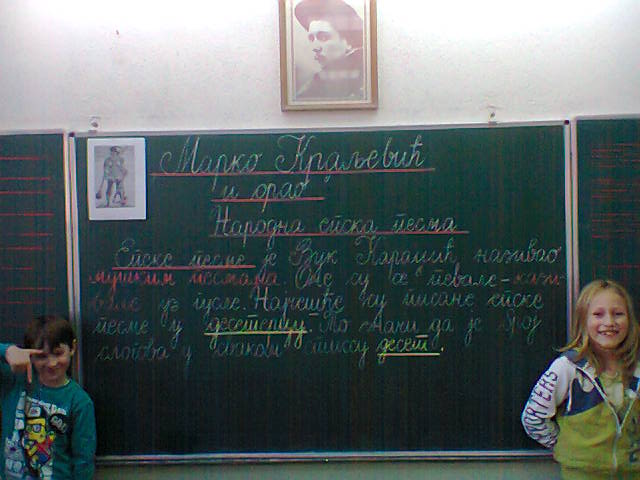 Марко Краљевић
и орао
Народна епска песма
Епске песме је Вук Караџић називао
мушким песмама. Оне су се певале-кази-
вале уз гусле. Најчешће су писане епске
песме у десетерцу. То значи да је број
слогова у сваком стиху десет.
PORTERS